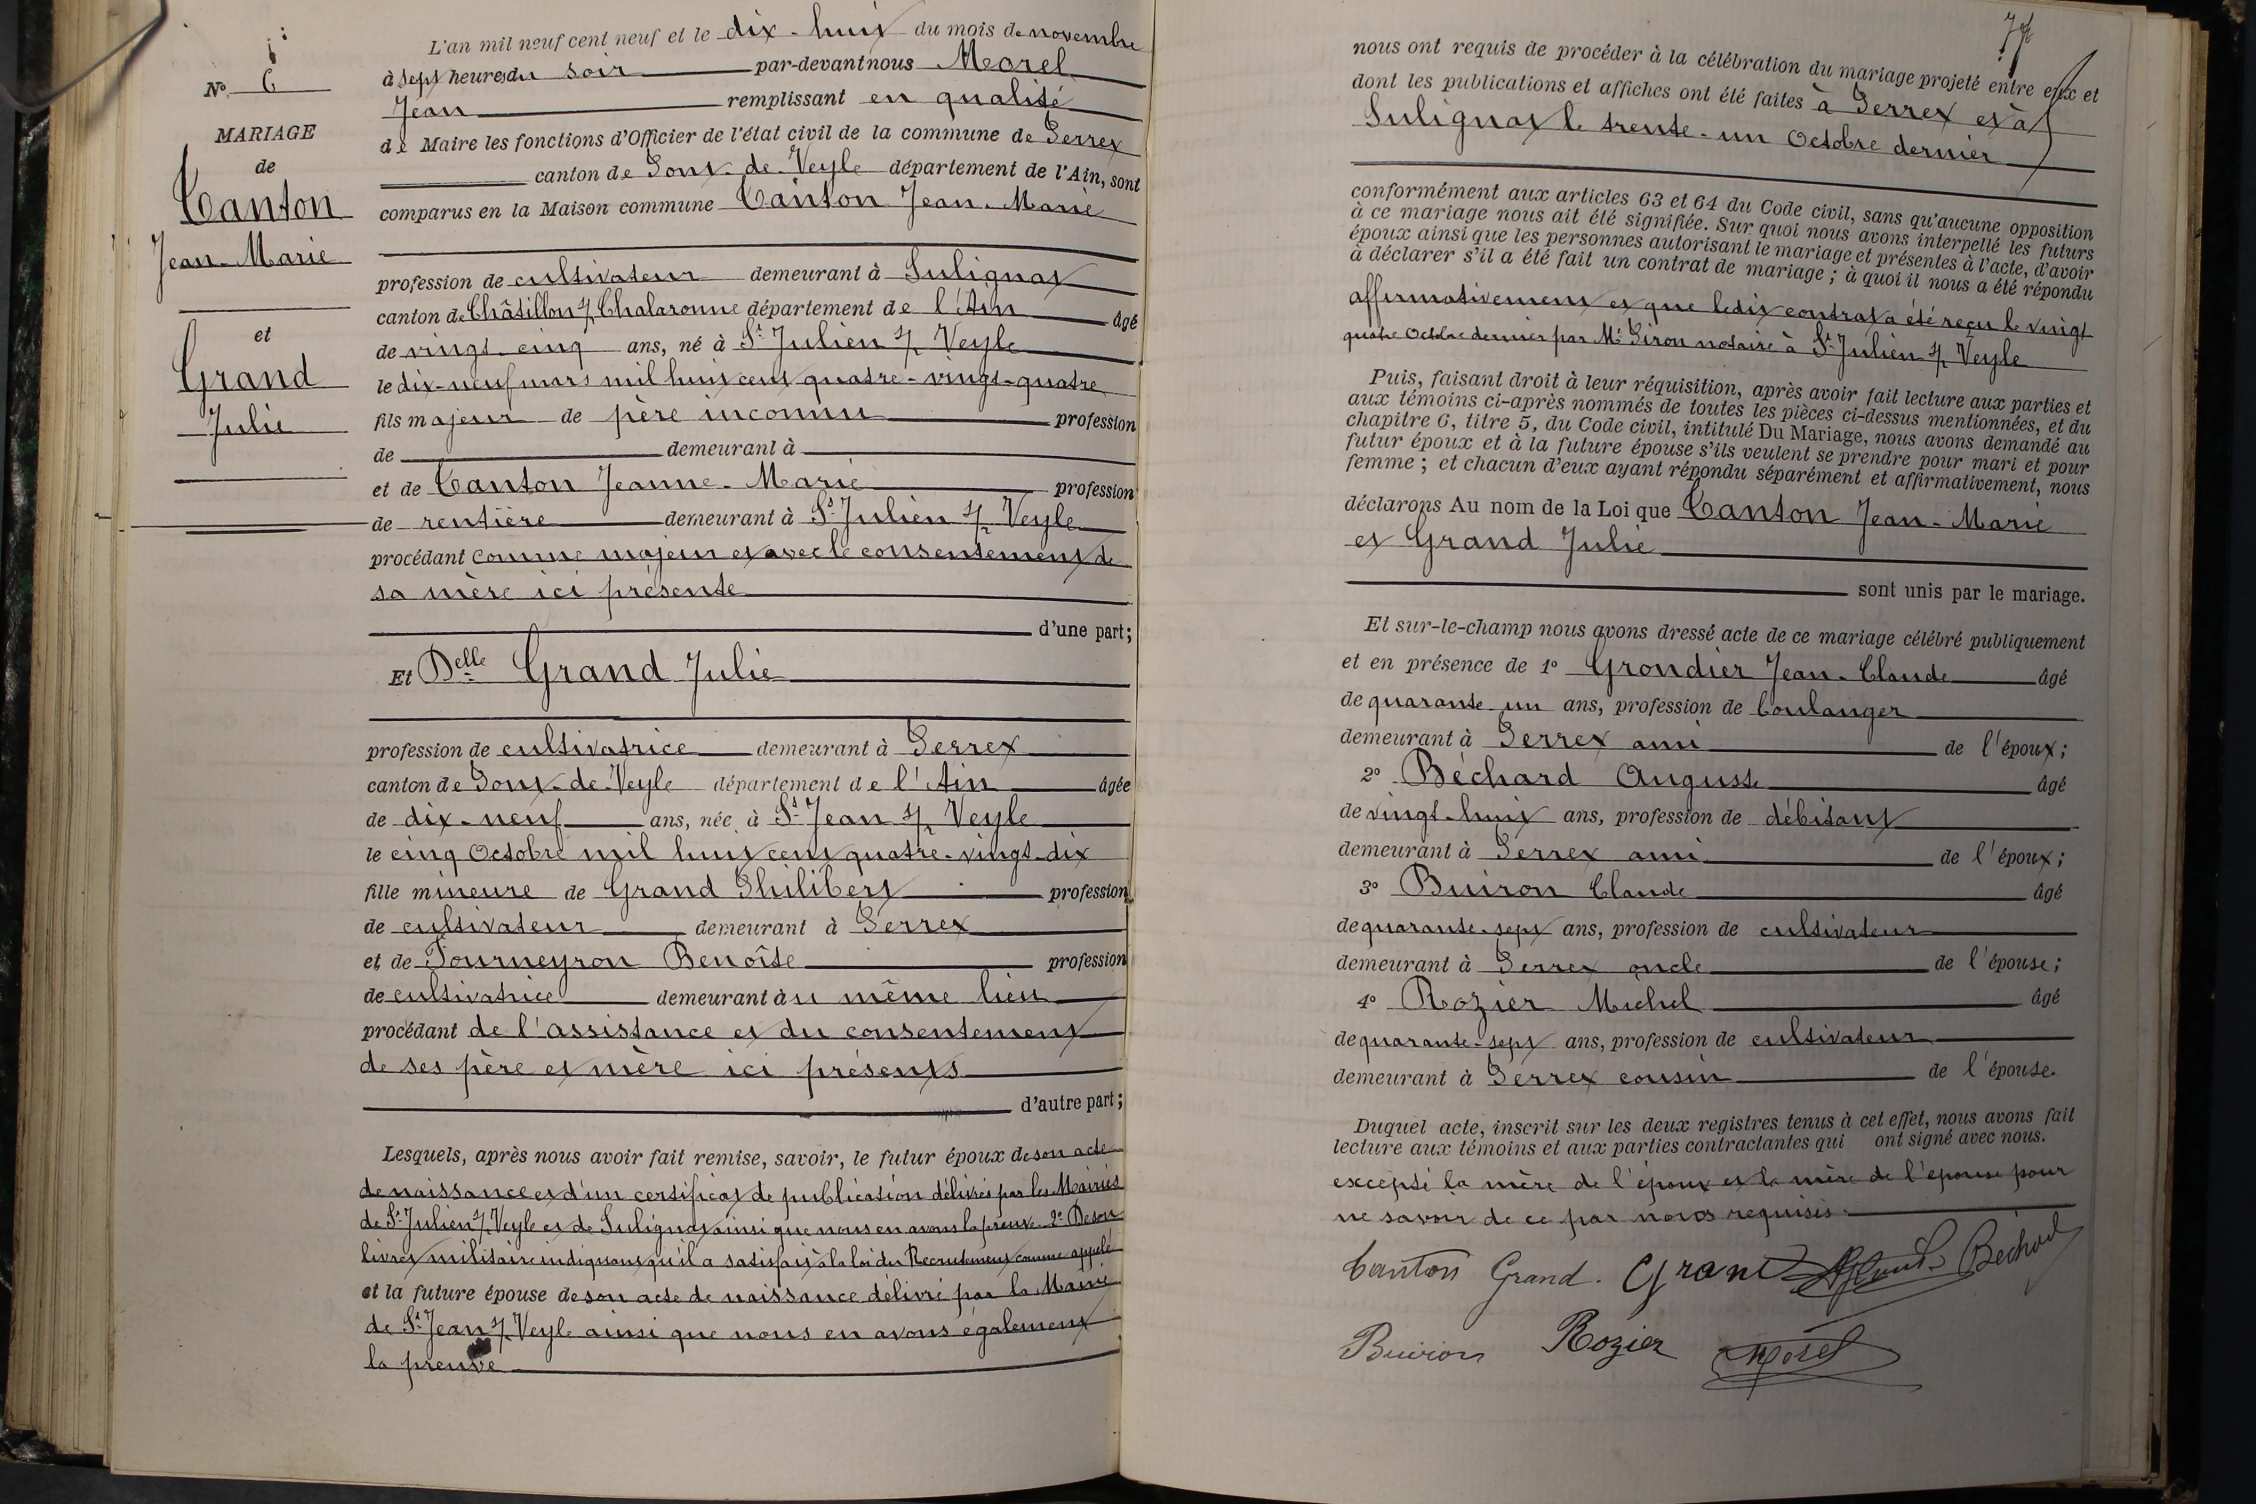 L'an mil neuf cent neuf et le dix-huit du mois de novembre
à sept heures du soir par-devant nous Morel
Jean remplissant en qualité
de Maire les fonctions d'Officier de l'état civil de la commune de Perrex
canton de Pont-de-Veyle département de l'Ain, sont
comparus en la Maison commune Canton Jean-Marie
profession de cultivateur demeurant à Sulignat
canton de Châtillon s/ Chalaronne département de l'Ain âgé
de vingt-cinq ans, né à St Julien s/ Veyle
le dix-neuf mars mil huit cent quatre-vingt-quatre
fils majeur de père inconnu profession
de demeurant à
et de Canton Jeanne-Marie profession
de rentière demeurant à St Julien s/ Veyle
procédant comme majeur et avec le consentement de
sa mère ici présente
d'une part;
Et Delle Grand Julie
profession de cultivatrice demeurant à Perrex
canton de Pont-de-Veyle département de l'Ain âgée
de dix-neuf ans, née à St Jean s/ Veyle
le cinq Octobre mil huit cent quatre-vingt-dix
fille mineure de Grand Philibert profession
de cultivateur demeurant à Perrex
et de Tourneyron Benoîte profession
de cultivatrice demeurant au même lieu
procédant de l'assistance et du consentement
de ses père et mère ici présents
d'autre part;
Lesquels, après nous avoir fait remise, savoir, le futur époux de son acte
de naissance et d'un certificat de publication délivrés par les Mairies
de St Julien s/ Veyle et de Sulignat ainsi que nous en avons la preuve 2° De son
livret militaire indiquant qu'il a satisfait à la loi du Recrutement comme appelé
et la future épouse de son acte de naissance délivré par la Mairie
de St Jean s/ Veyle ainsi que nous en avons également
la preuve
No 6
MARIAGE
de
Canton
Jean-Marie
et
Grand
Julie
nous ont requis de procéder à la célébration du mariage projeté entre eux et
dont les publications et affiches ont été faites à Perrex et à
Sulignat le trente-un Octobre dernier
conformément aux articles 63 et 64 du Code civil, sans qu'aucune opposition
à ce mariage nous ait été signifiée. Sur quoi nous avons interpellé les futurs
époux ainsi que les personnes autorisant le mariage et présentes à l'acte, d'avoir
à déclarer s'il a été fait un contrat de mariage; à quoi il nous a été répondu
affirmativement et que ledit contrat a été reçu le vingt
quatre Octobre dernier par Me Giron notaire à St Julien s/ Veyle
Puis, faisant droit à leur réquisition, après avoir fait lecture aux parties et
aux témoins ci-après nommés de toutes les pièces ci-dessus mentionnées, et du
chapitre 6, titre 5, du Code civil, intitulé Du Mariage, nous avons demandé au
futur époux et à la future épouse s'ils veulent se prendre pour mari et pour
femme; et chacun d'eux ayant répondu séparément et affirmativement, nous
déclarons Au nom de la Loi que Canton Jean-Marie
et Grand Julie
sont unis par le mariage.
Et sur-le-champ nous avons dressé acte de ce mariage célébré publiquement
et en présence de 1° Grondier Jean-Claude âgé
de quarante-un ans, profession de boulanger
demeurant à Perrex ami de l'époux;
2° Béchard Auguste âgé
de vingt-huit ans, profession de débitant
demeurant à Perrex ami de l'époux;
3° Buiron Claude âgé
de quarante-sept ans, profession de cultivateur
demeurant à Perrex oncle de l'épouse;
4° Rozier Michel âgé
de quarante-sept ans, profession de cultivateur
demeurant à Perrex cousin de l'épouse.
Duquel acte, inscrit sur les deux registres tenus à cet effet, nous avons fait
lecture aux témoins et aux parties contractantes qui ont signé avec nous.
excepté la mère de l'époux et la mère de l'épouse pour
ne savoir de ce par nous requises.
Canton Grand. Grand Béchard
Buiron Rozier Morel